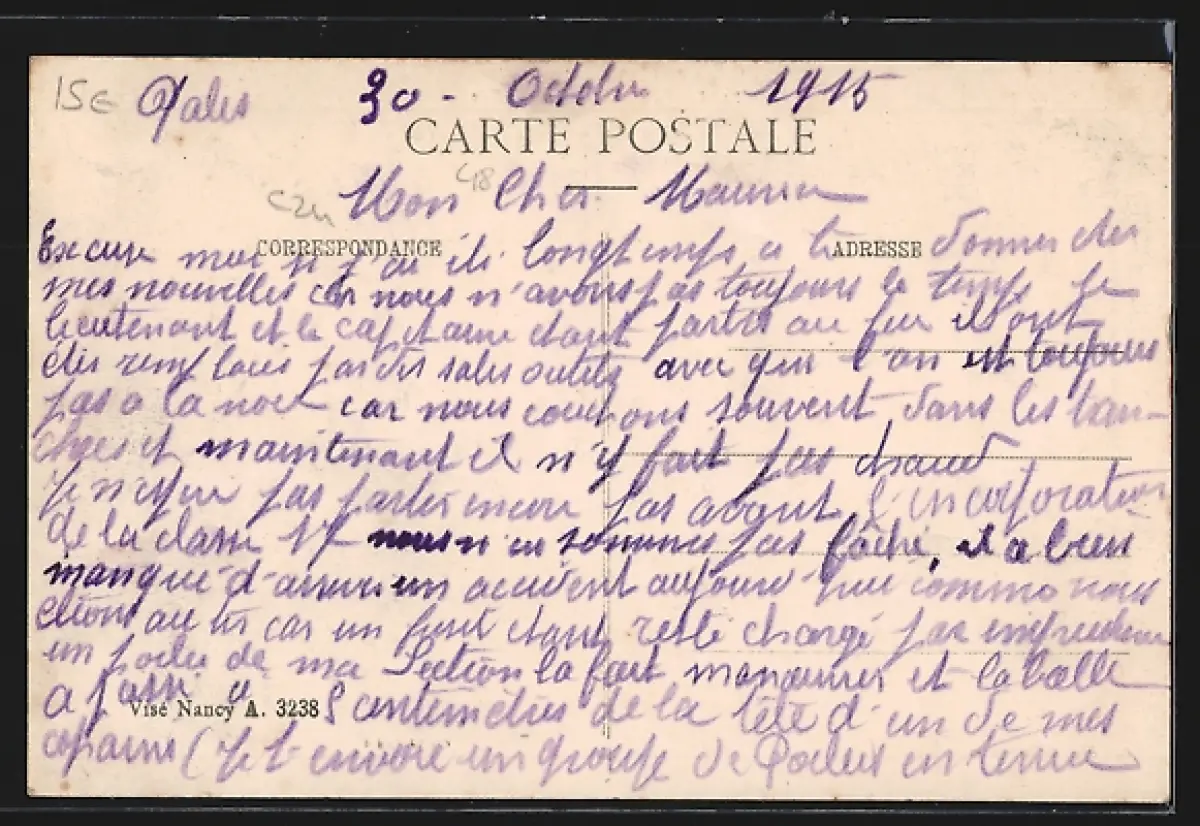 15€ 30 - Octobre 1915
CARTE POSTALE
Mon Cher Maurice
CORRESPONDANCE ADRESSE
Excuse moi si j'ai été longtemps a te donner de
mes nouvelles car nous n'avons pas toujours le temps le
lieutenant et le capitaine étant partis au feu ils ont
été remplacés par des sales outils avec qui l'on est toujours
pas a la noce car nous couchons souvent dans les tran-
chées et maintenant il n'y fait pas chaud
Je n'espère pas partir encore pas avant l'incorporation
de la classe 17 nous n'en sommes pas faché, il a bien
manqué d'arriver un accident aujourd'hui comme nous
étions au tir car un fusil étant resté chargé par imprudence
un poilu de ma Section la fait manœuvrer et la balle
a passé a
Visé Nancy A. 3238
centimètres de la tête d'un de mes
copains (Je t'envoie un groupe de Poilus en tenue